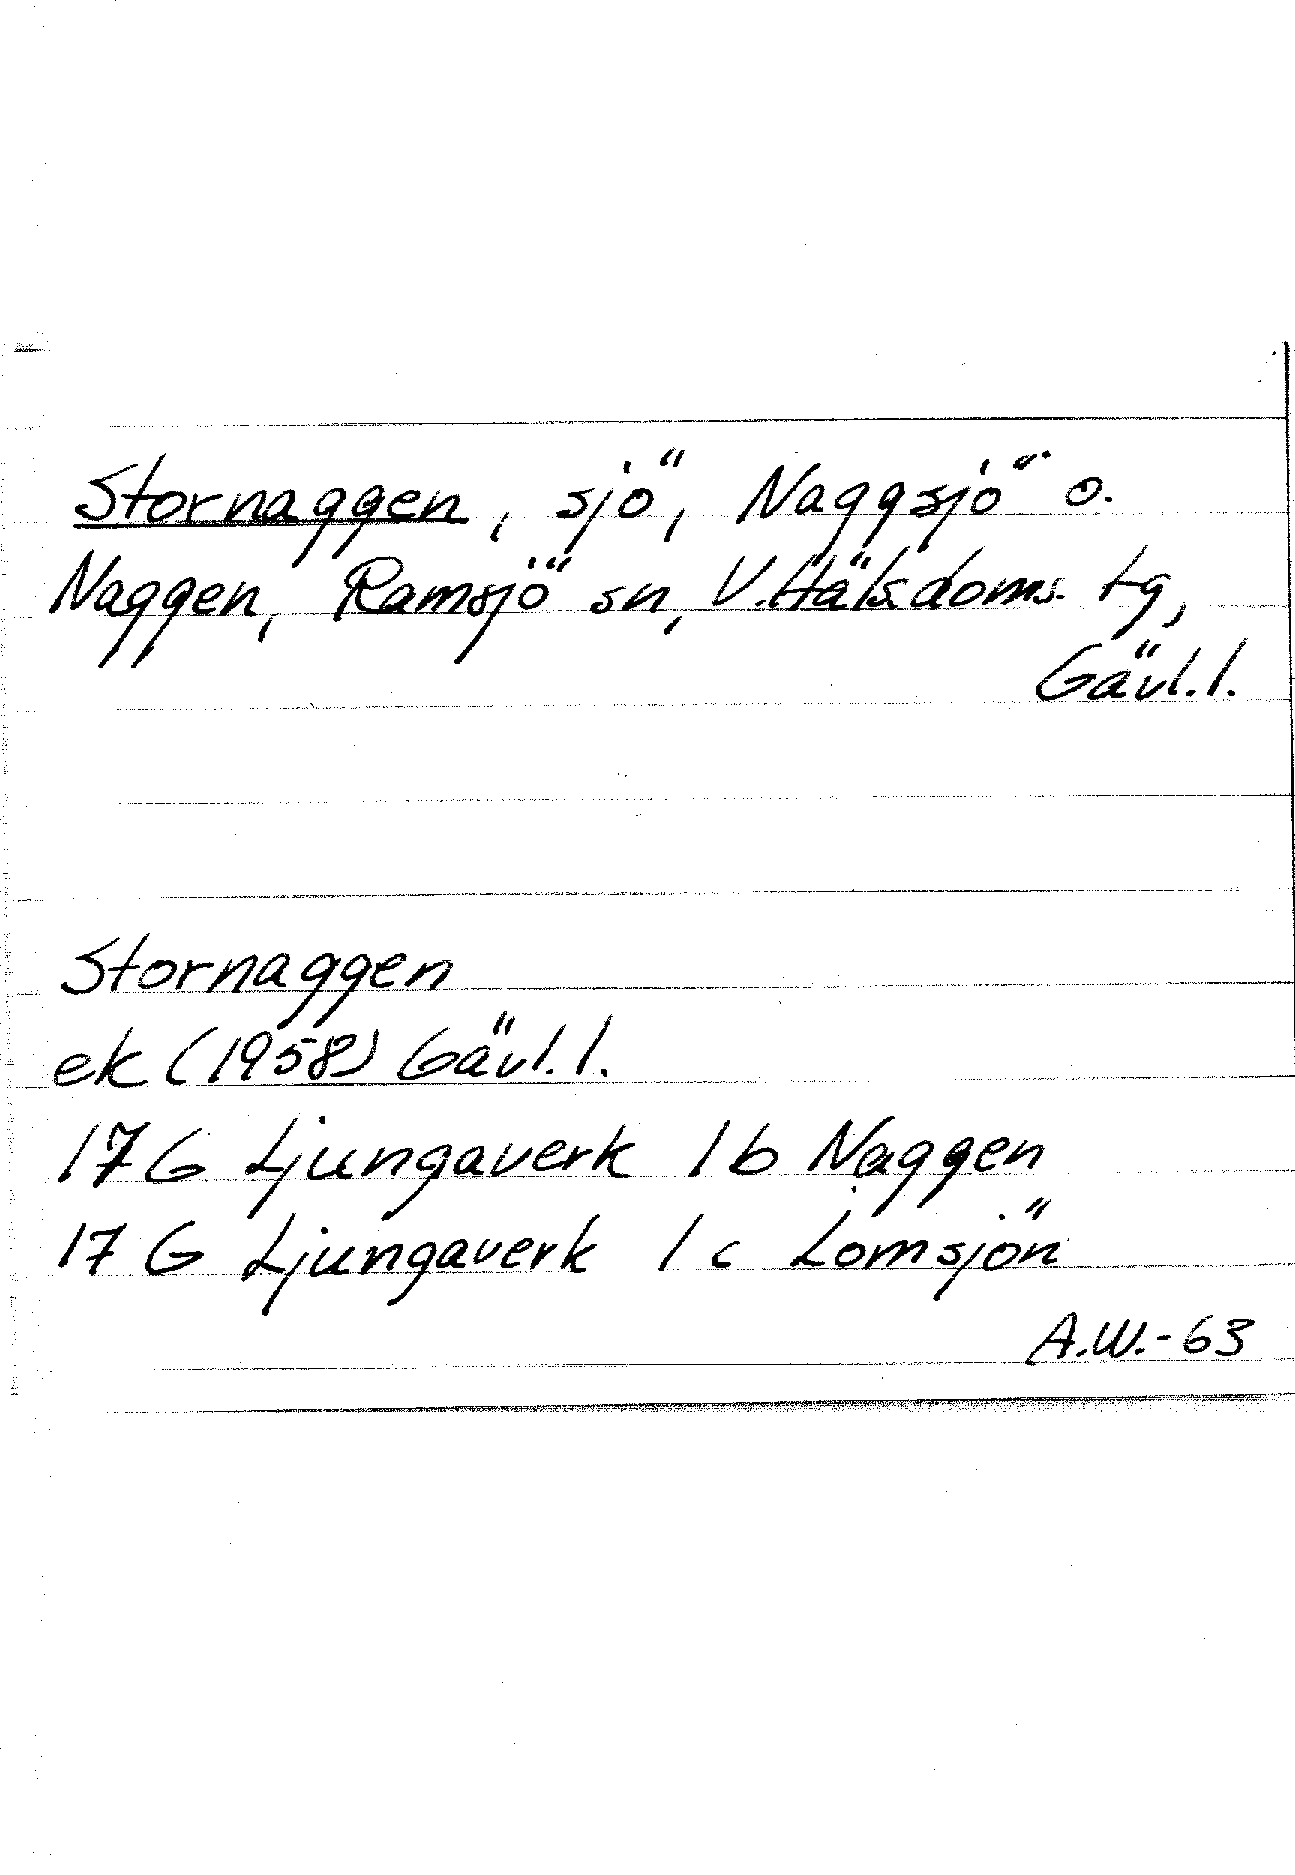 Stornaggen, sjö, Naggsjö o.
Naggen, Ramsjö sn, V.Hälsdoms. tg,
Gävl.l.
Stornaggen
ek (1958) Gävl.l.
17 G Ljungaverk 1 b Naggen
17 G Ljungaverk 1 c Lomsjön
A.W.-63